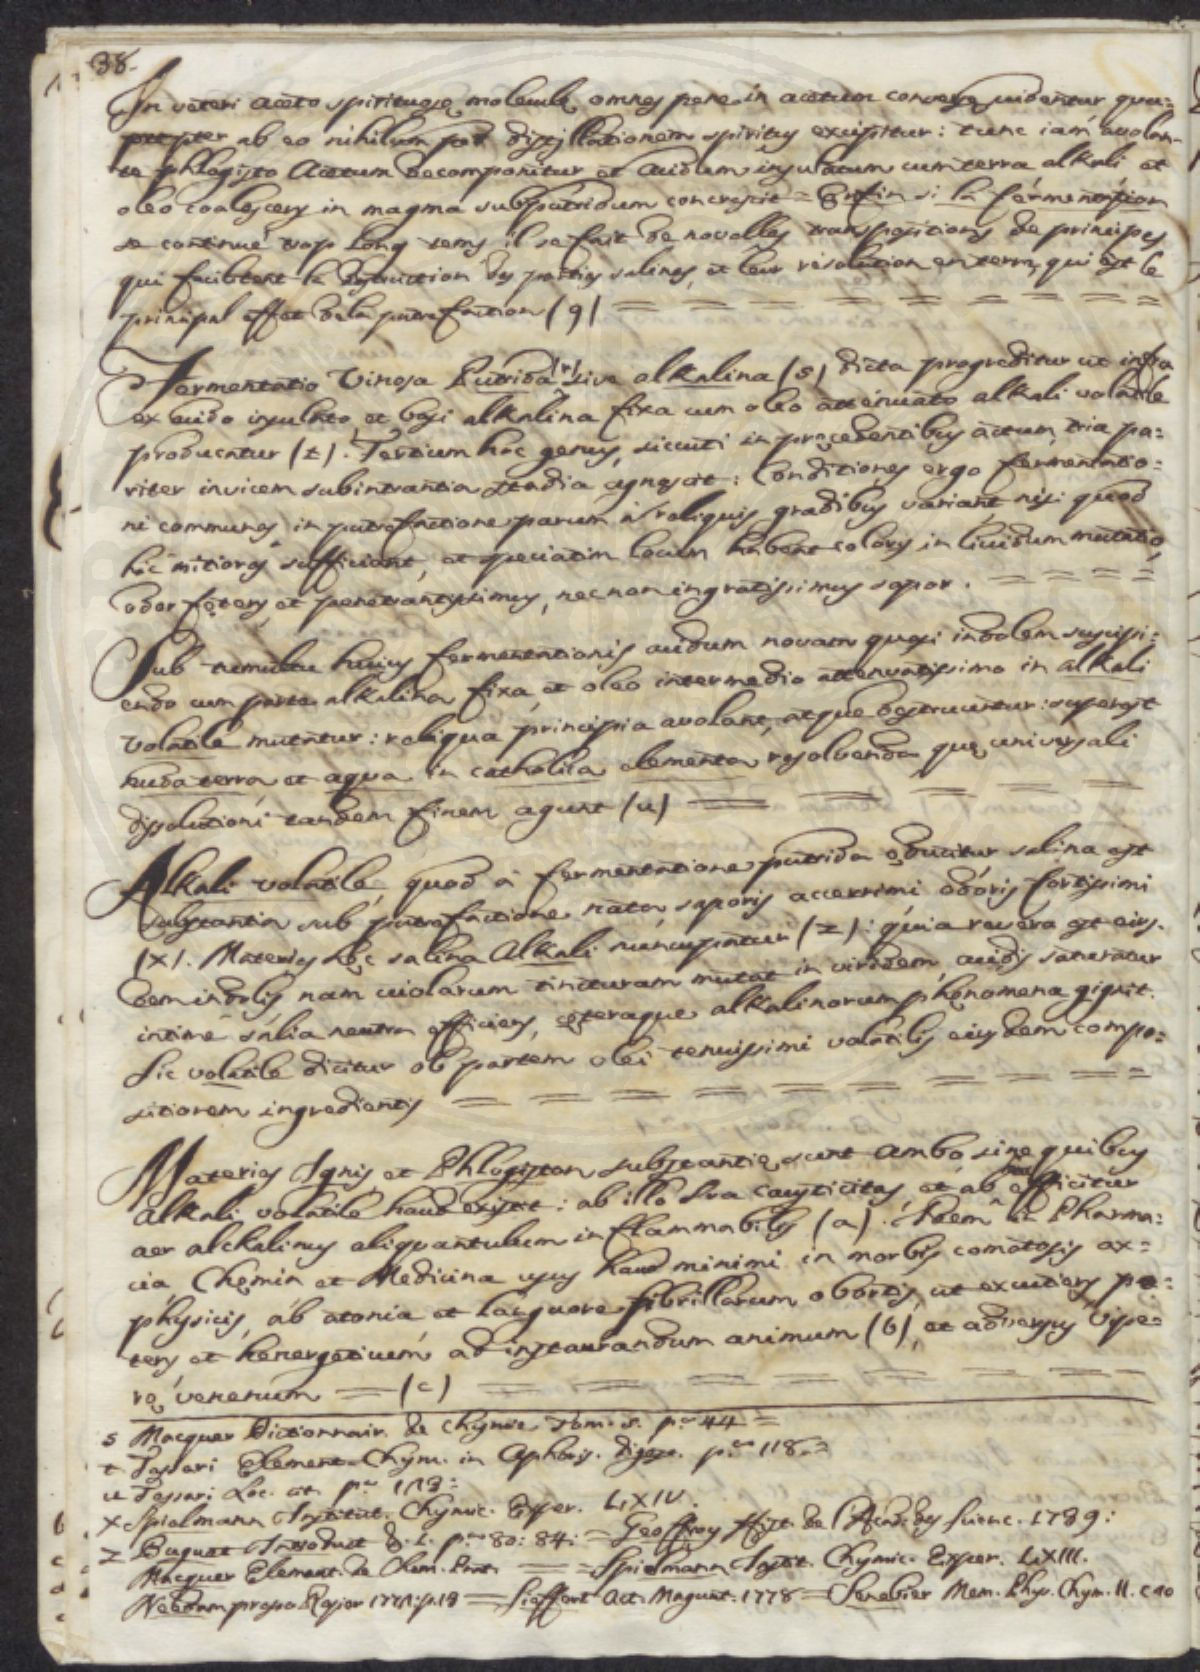 38.
In veteri aceto spirituosę moleculę omnes pene in acetum conversę videntur, qua=
propter ab eo nihilum per distillationem spiritus excipitur: tunc iam avolan-
te phlogisto Acetum decomponitur et acidum insulatum cum terra alkali et
oleo coalescens in magma subputridum concrescit = Enfin si la fermentation
se continue trop long tems il se fait de novelles transpositions de principes
qui facilitent la destruction des parties salines, et leur résolution en terre, qui est le
principal effet de la putrefaction (q)
Fermentatio Vinosa Putrida (r) sive alkalina (s) dicta progreditur ut infra
ex acido insulato, et basi alkalina fixa cum oleo attenuato alkali volatile
producatur (t). Tertium hoc genus, siccuti in pręcedentibus actum, tria pa=
riter invicem subintrantia stadia agnoscit: Conditiones ergo fermentatio=
ni communes in putrefactione parum à reliquis gradibus variant nisi quod
hic mitiores sufficiant, et speciatim locum habent coloris in lividum mutatio,
odor fętens, et penetrantissimus, nec non ingratissimus sapor.
Sub tumultu huius fermentationis acidum novam quasi indolem suscipi=
endo cum parte alkalina fixa, et oleo intermedio attenuatissimo in alkali
volatile mutatur: reliqua principia avolant, atque destruuntur: superest
nuda terra, et aqua in catholica elementa resolvenda quę universali
dissolutioni tandem finem agunt (u)
Alkali volatile, quod a fermentatione putrida educitur salina est
substantia sub putrefactione nata, saporis accerrimi odoris fortissimi
(x). Materies hęc salina Alkali nuncupatur (z): quia revera est eius-
dem indolis nam violarum tincturam mutat in viridem, acidis saturatur
intimè salia neutra efficiens, cęteraque alkalinorum phęnomena gignit.
Sic volatile dicitur ob partem olei tenuissimi volatilis eiusdem compo=
sitionem ingredientis
Materies Ignis et Phlogiston substantię sunt ambo sine quibus
alkali volatile haud existit: ab illo sua causticitas, et ab efficitur
aer alckalinus aliquantulum inflammabilis (a). Idem in Pharma=
cia, Chęmia et Medicina usus haud minimi in morbis comatosis ax=
physicis, ab atonia, et languore fibrillarum obortis, ut excutiens po=
tens et henergeticum, ad instaurandum animum (b), et adversus Vipe=
rę venenum = (c)
s Macquer Dictionnair. de chymie Tom. s. p.ª 44 =
t Tessari Element. Chym. in Aphoris. digest. p.ª 118. =
u Tessari Loc. cit. p.ª 113:
x Spielmann Institut. Chymic. Exper. LXIV.
z Buquet Introduct &. L. p.ª 80: 84: = Geoffroy Hist. de l'Acad. des Scienc. 1789:
Macquer Element. de Chem. Prat. = = Spielmann Instit. Chymic. Exper. LXIII.
Rosier 1774: p. 18 = Act. Magunt. 1778 = Senebier Mem. Phys. Chym. II. c 40